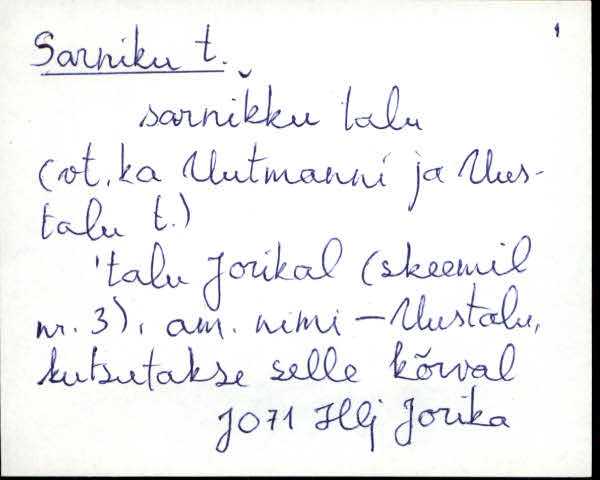 1
Sarniku t.
sarnikku talu
(vt. ka Uutmanni ja Uus-
talu t.)
'talu Jorikal (skeemil
nr. 3), am. nimi – Uustalu,
kutsutakse selle kõrval
J071 Hlj Jorika